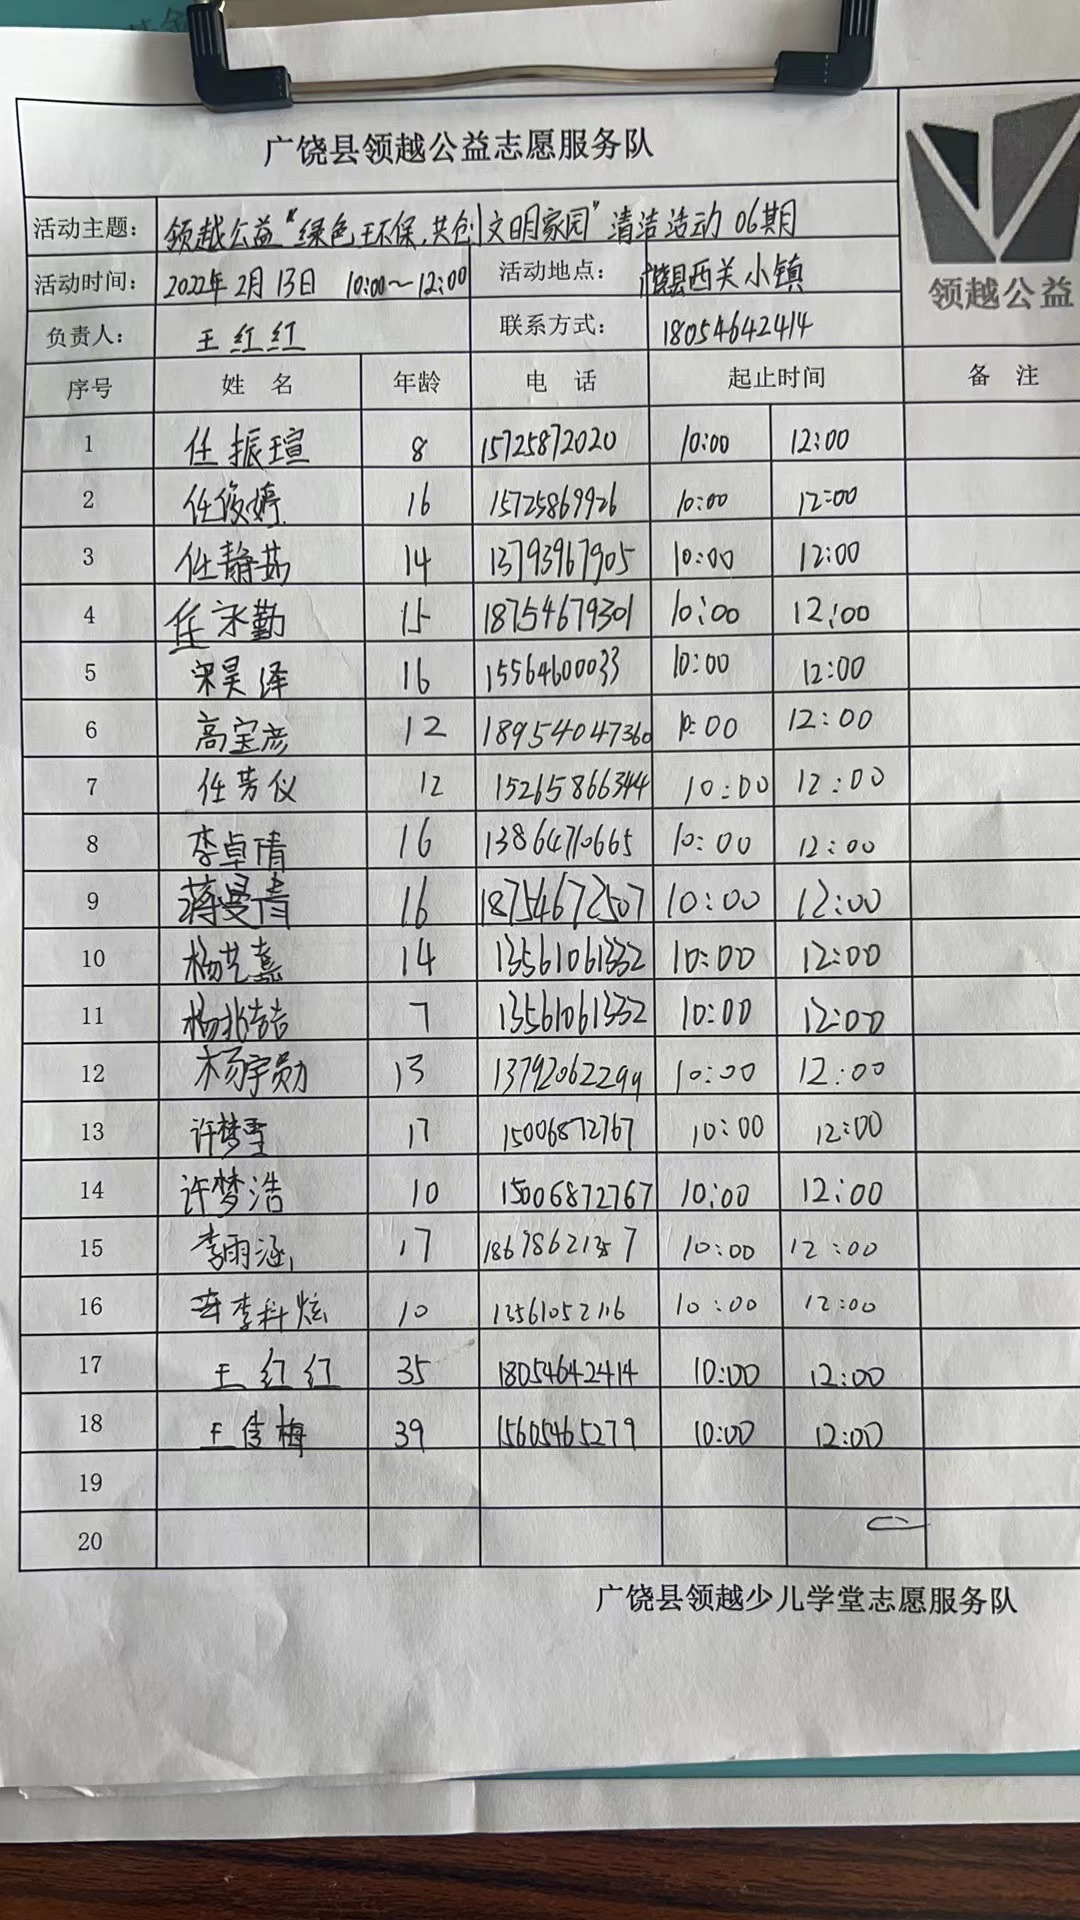 广饶县领越公益志愿服务队
领越公益
活动主题： 领越公益“绿色环保，共创文明家园”清洁活动 06期
活动时间： 2022年2月13日 10:00～12:00 活动地点： 广饶县西关小镇
负责人： 王红红 联系方式： 18054642414
序号 姓 名 年龄 电 话 起止时间 备 注
1 任振瑄 8 15725872020 10:00 12:00
2 任俊婷 16 15725869926 10:00 12:00
3 任静茹 14 13793967905 10:00 12:00
4 任永勤 15 18754679301 10:00 12:00
5 宋昊泽 16 15564600033 10:00 12:00
6 高宝彦 12 18954047360 10:00 12:00
7 任芳仪 12 15265866344 10:00 12:00
8 李卓倩 16 13864710665 10:00 12:00
9 蒋曼青 16 18754672507 10:00 12:00
10 杨艺熹 14 13561061332 10:00 12:00
11 杨兆喆 7 13561061332 10:00 12:00
12 杨宇勋 13 13792062299 10:00 12:00
13 许梦雪 17 15006872767 10:00 12:00
14 许梦浩 10 15006872767 10:00 12:00
15 李雨涵 17 10:00 12:00
16 李科炫 10 13561052116 10:00 12:00
17 王红红 35 18054642414 10:00 12:00
18 王俊梅 39 15605465279 10:00 12:00
19
20
广饶县领越少儿学堂志愿服务队